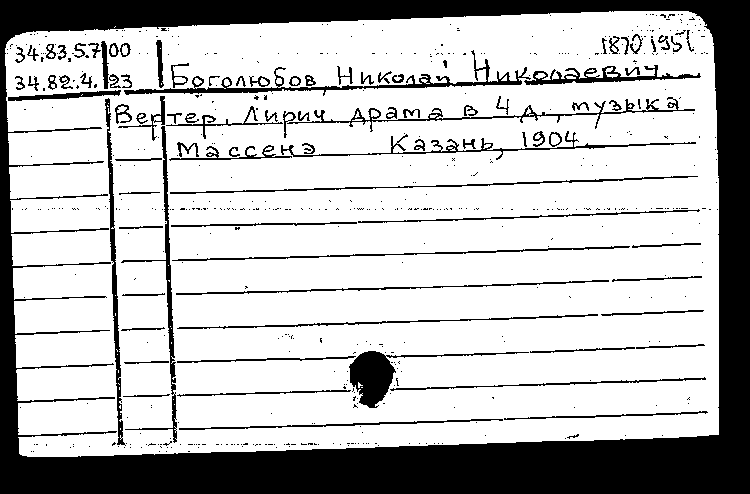 34.83.5.7 00 1870 1951
34.82.4. 23 Боголюбов, Николай Николаевич.
Вертер. Лирич. драма в 4 д., музыка
Массенэ Казань, 1904